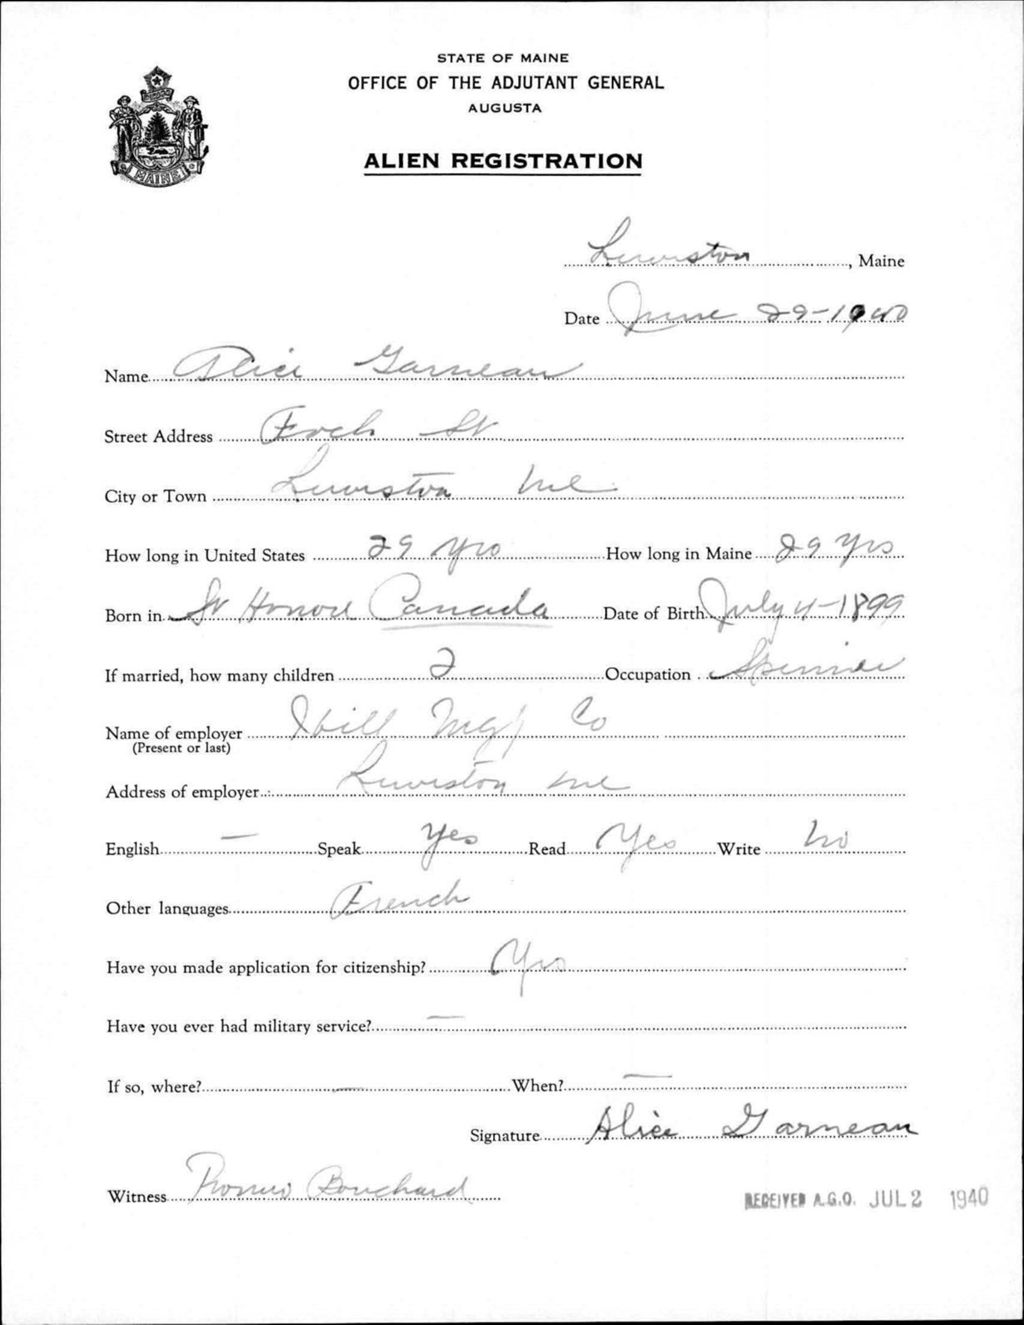 STATE OF MAINE
OFFICE OF THE ADJUTANT GENERAL
AUGUSTA
ALIEN REGISTRATION
MAINE
Lewiston, Maine
Date June 29-1940
Name Alice Garneau
Street Address Foch St
City or Town Lewiston Me
How long in United States 29 yrs How long in Maine 29 Yrs
Born in St Honore Canada Date of Birth July 4-1899
If married, how many children 2 Occupation Spinner
Name of employer Hill Mfg Co
(Present or last)
Address of employer Lewiston Me
English — Speak Yes Read Yes Write No
Other languages French
Have you made application for citizenship? Yes
Have you ever had military service? —
If so, where? — When? —
Signature Alice Garneau
Witness Romeo Bouchard
RECEIVED A.G.O. JUL 2 1940